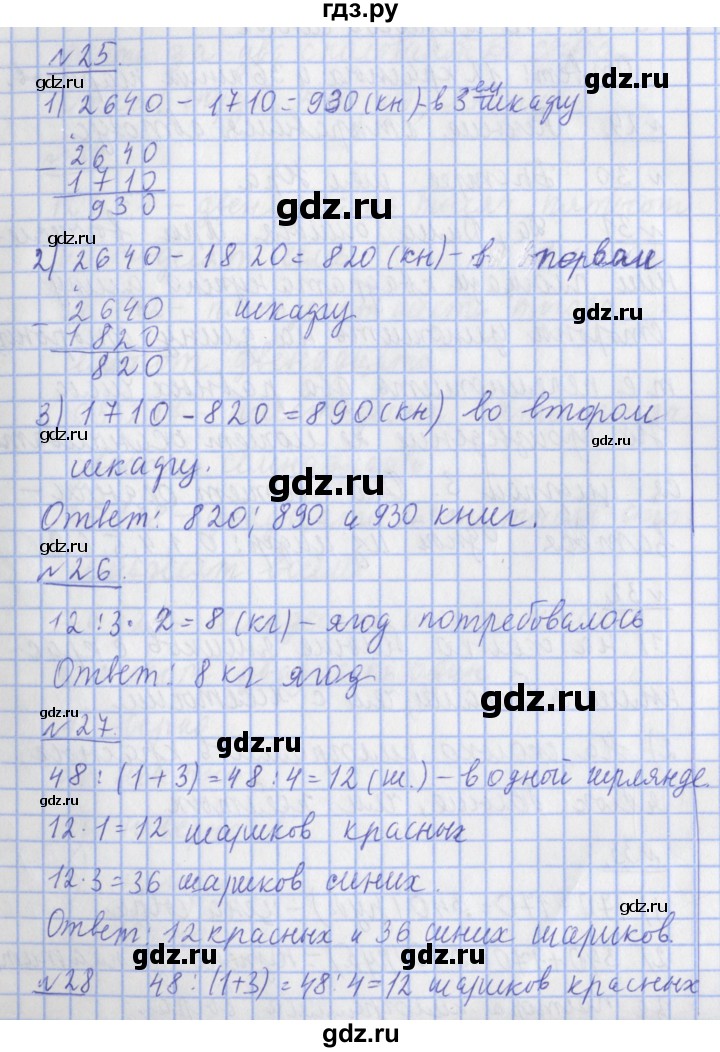 гдз.ру
№25.
1) 2640 - 1710 = 930 (кн) - в 3ем шкафу
gdz.ru
- 2640
1710
930
gdz.ru
gdz.ru
2) 2640 - 1820 = 820 (кн) - в первом
- 2640 шкафу
gdz.ru
1820
820
3) 1710 - 820 = 890 (кн) во втором
gdz.ru
шкафу.
gdz.ru
Ответ: 820; 890 и 930 книг.
gdz.ru
№26.
12 : 3 · 2 = 8 (кг) - ягод потребовалось
Ответ: 8 кг ягод
gdz.ru
gdz.ru
№27.
48 : (1+3) = 48 : 4 = 12 (ш.) - в одной гирлянде.
gdz.ru
12 · 1 = 12 шариков красных
12 · 3 = 36 шариков синих.
gdz.ru
Ответ: 12 красных и 36 синих шариков.
gdz.ru
gdz.ru
№28 48 : (1+3) = 48 : 4 = 12 шариков красных
гдз.ру